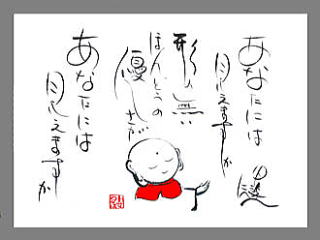 あなたには
見えますか
形の無
ほんとうの
優しさが
あなたには
見えますか